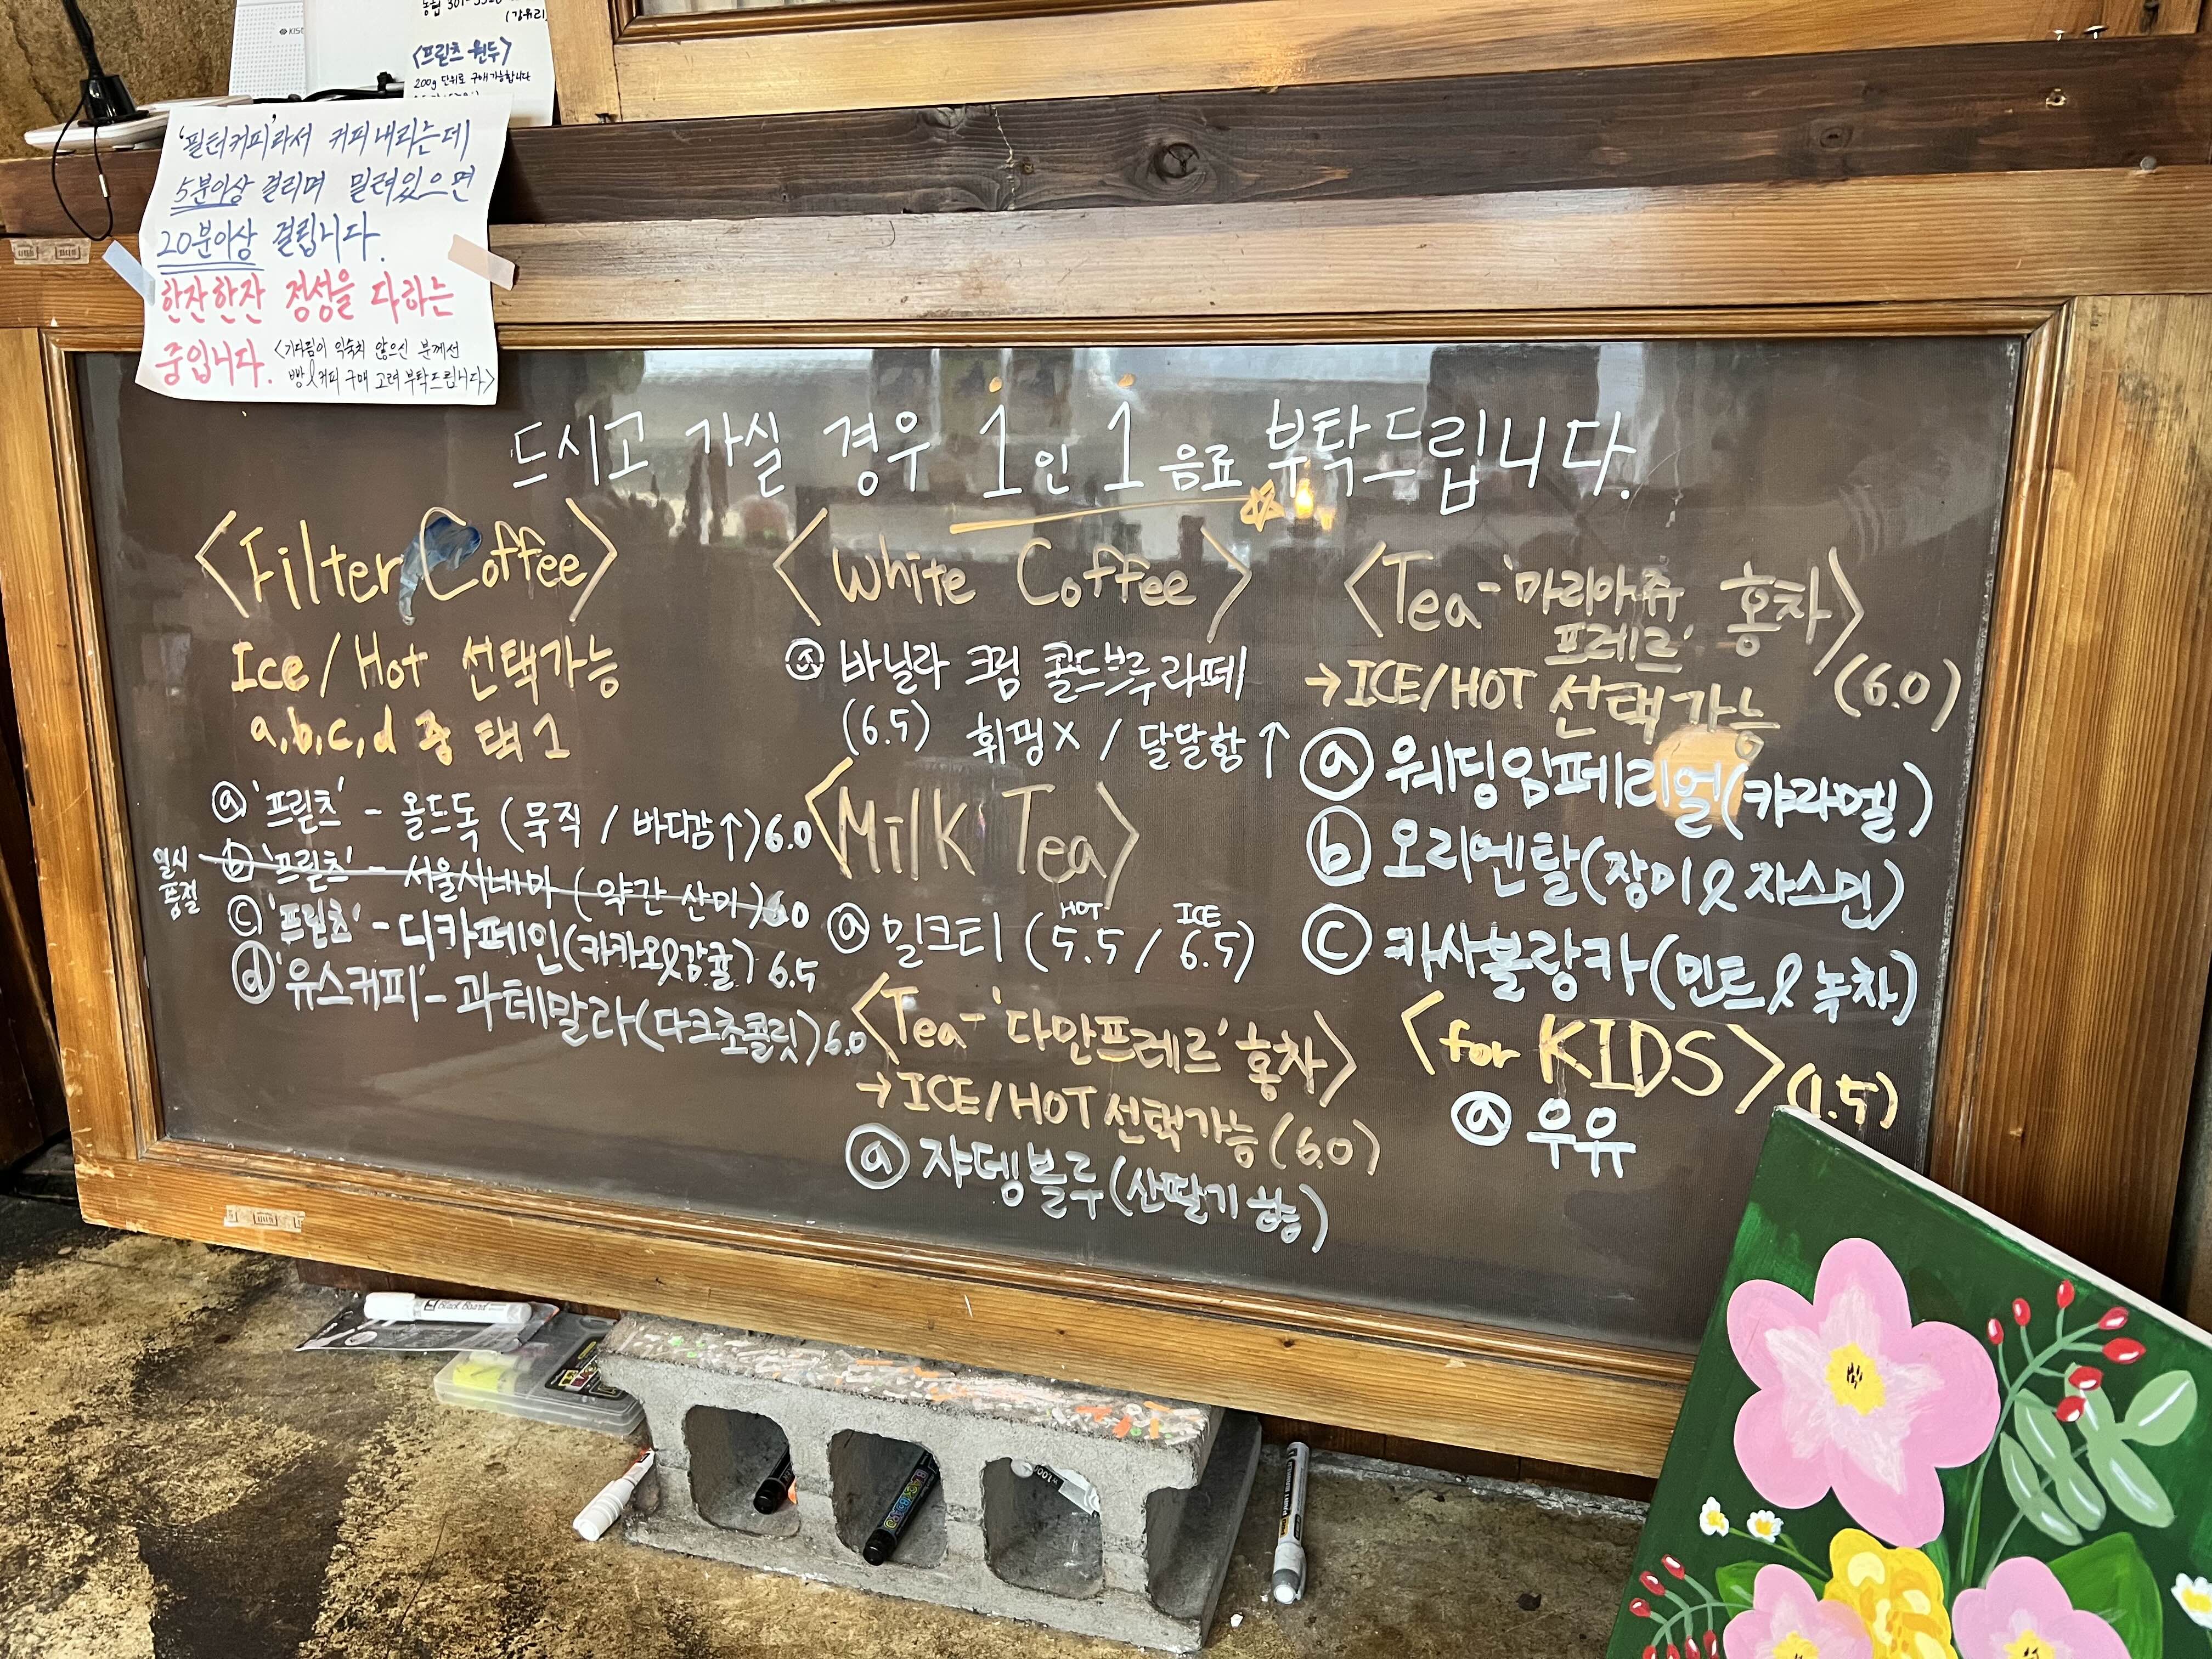 (강유리)
<프릳츠 원두>
200g 단위로 구매가능합니다
'필터커피'라서 커피내리는데
5분이상 걸리며 밀려있으면
20분이상 걸립니다.
한잔한잔 정성을 다하는
중입니다. <기다림이 익숙치 않으신 분께선
빵&커피 구매 고려 부탁드립니다>
드시고 가실 경우 1인 1음료 부탁드립니다.
<Filter Coffee>
Ice / Hot 선택가능
a,b,c,d 중 택1
ⓐ '프릳츠' - 올드독 (묵직 / 바디감↑) 6.0
일시
품절
ⓑ '프릳츠' - 서울시네마 (약간 산미) 6.0
ⓒ '프릳츠' - 디카페인(카카오&감귤) 6.5
ⓓ '유스커피' - 과테말라(다크초콜릿) 6.0
<White Coffee>
ⓐ 바닐라 크림 콜드브루 라떼
(6.5) 휘핑X / 달달함↑
<Milk Tea>
HOT ICE
ⓐ 밀크티 (5.5 / 6.5)
<Tea-'다만프레르' 홍차>
→ICE/HOT 선택가능 (6.0)
ⓐ 쟈뎅블루 (산딸기 향)
<Tea-'마리아쥬
프레르' 홍차>
(6.0)
→ICE/HOT 선택가능
ⓐ 웨딩임페리얼(캬라멜)
ⓑ 오리엔탈(장미&쟈스민)
ⓒ 카사블랑카(민트&녹차)
<for KIDS> (1.5)
ⓐ 우유
Black Board